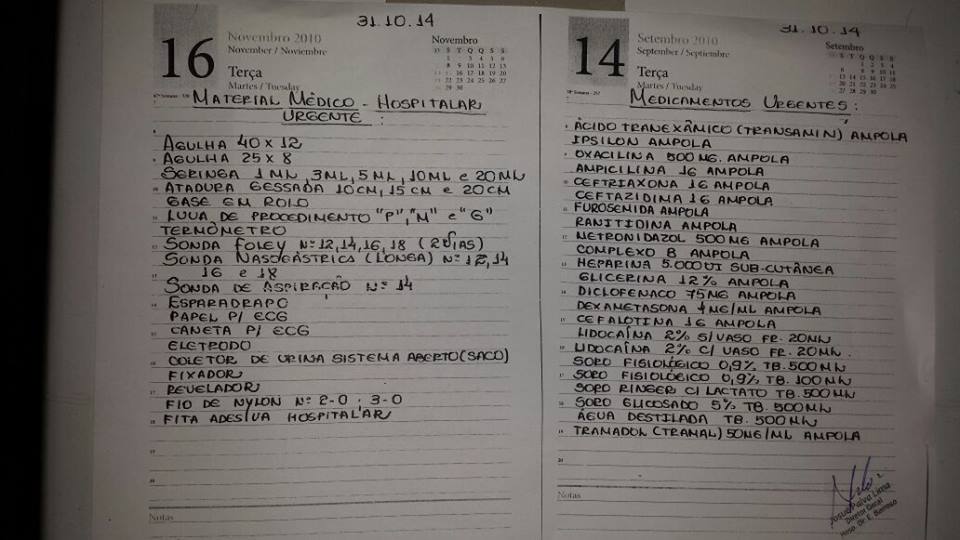 31.10.14
16
Novembro 2010
November / Noviembre
Terça
Martes / Tuesday
Novembro
MATERIAL MÉDICO - HOSPITALAR
URGENTE :
AGULHA 40 x 12
AGULHA 25 x 8
SERINGA 1 ML, 3ML, 5 ML, 10ML e 20ML
ATADURA GESSADA 10CM, 15 CM e 20CM
GASE EM ROLO
LUVA DE PROCEDIMENTO "P", "M" e "G"
TERMÔMETRO
SONDA FOLEY Nº 12,14,16,18 (2 VIAS)
SONDA NASOGÁSTRICS (LONGA) Nº 12,14
16 e 18
SONDA DE ASPIRAÇÃO Nº 14
ESPARADRAPO
PAPEL P/ ECG
CANETA P/ ECG
ELETRODO
COLETOR DE URINA SISTEMA ABERTO (SACO)
FIXADOR
REVELADOR
FIO DE NYLON Nº 2-0 , 3-0
FITA ADESIVA HOSPITALAR
Notas
31.10.14
14
Setembro 2010
September / Septiembre
Terça
Martes / Tuesday
Setembro
MEDICAMENTOS URGENTES :
ÁCIDO TRANEXÂMICO (TRANSAMIN) AMPOLA
IPSILON AMPOLA
OXACILINA 500 MG. AMPOLA
AMPICILINA 1G AMPOLA
CEFTRIAXONA 1G AMPOLA
CEFTAZIDIMA 1G AMPOLA
FUROSEMIDA AMPOLA
RANITIDINA AMPOLA
METRONIDAZOL 500 MG AMPOLA
COMPLEXO B AMPOLA
HEPARINA 5.000UI SUB-CUTÂNEA
GLICERINA 12% AMPOLA
DICLOFENACO 75MG AMPOLA
DEXAMETASONA 4MG/ML AMPOLA
CEFALOTINA 1G AMPOLA
LIDOCAÍNA 2% S/ VASO FR. 20ML
LIDOCAÍNA 2% C/ VASO FR. 20ML.
SORO FISIOLÓGICO 0,9% TB. 500ML
SORO FISIOLÓGICO 0,9% TB. 100ML
SORO RINGER C/ LACTATO TB. 500ML
SORO GLICOSADO 5% TB. 500ML
ÁGUA DESTILADA TB. 500ML
TRAMADOL (TRAMAL) 50MG/ML AMPOLA
Notas
Paiva Lima
Diretor Geral
Hosp. Dr. E. Barroso